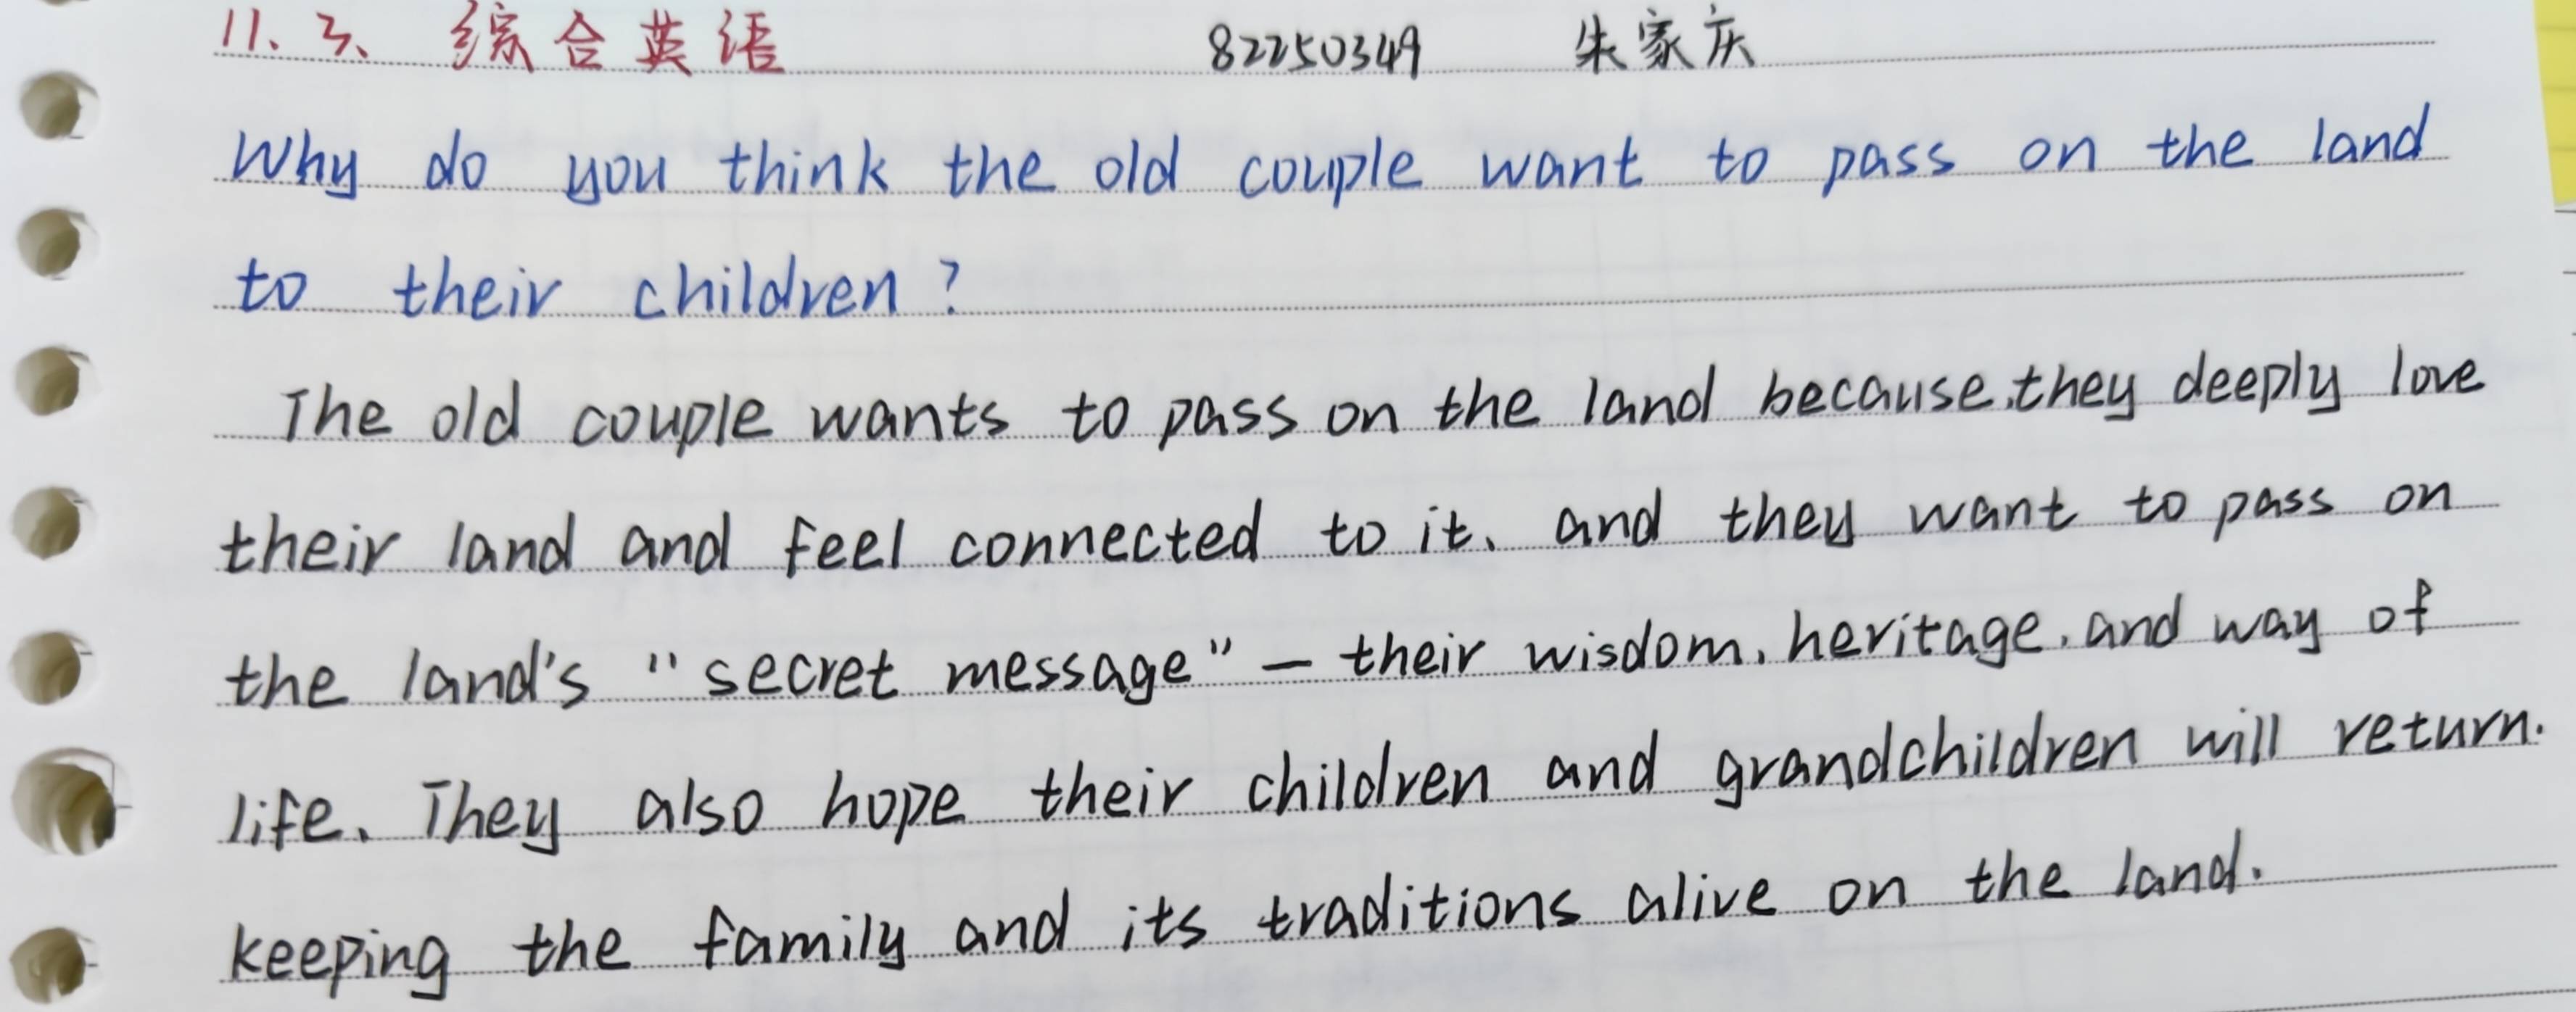 11、3、 综合英语 82250349 朱家庆
Why do you think the old couple want to pass on the land
to their children?
The old couple wants to pass on the land because, they deeply love
their land and feel connected to it、 and they want to pass on
the land's "secret message" — their wisdom, heritage, and way of
life、 They also hope their children and grandchildren will return.
keeping the family and its traditions alive on the land.